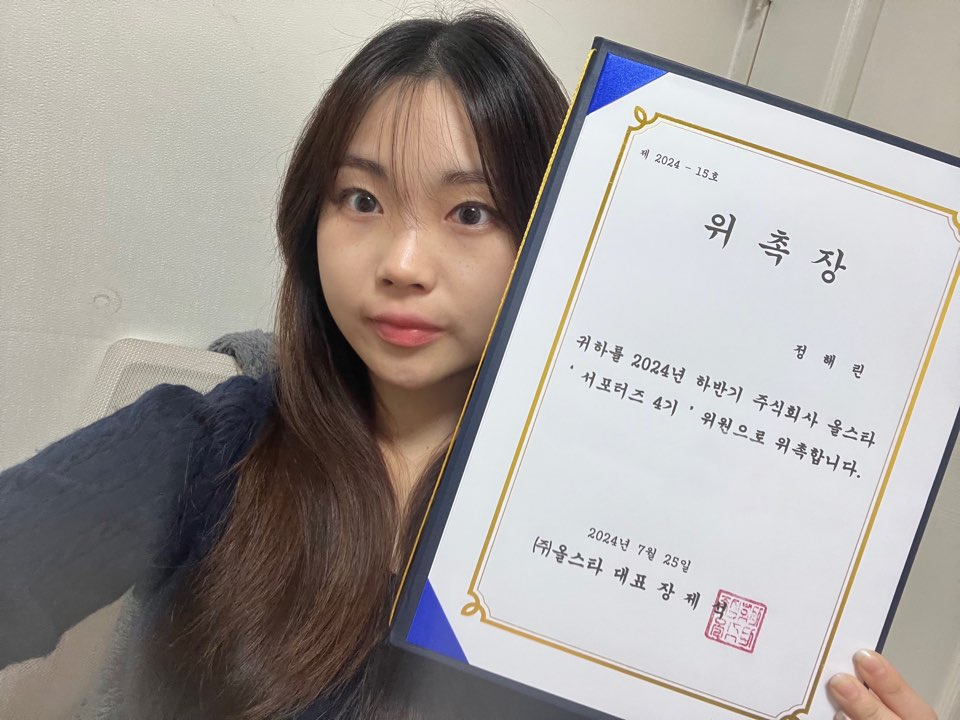 제 2024 - 15호
위 촉 장
정 해 린
귀하를 2024년 하반기 주식회사 올스타
' 서포터즈 4기 ' 위원으로 위촉합니다.
2024년 7월 25일
(주)올스타 대표 장 제